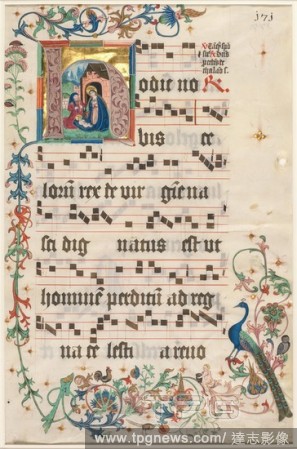 171
odie no
bis ce
lorum rex de vir gine na
sci dig natus est ut
hominē perditū ad reg
na ce lesti a revo
www.tpgnews.com/達志影像